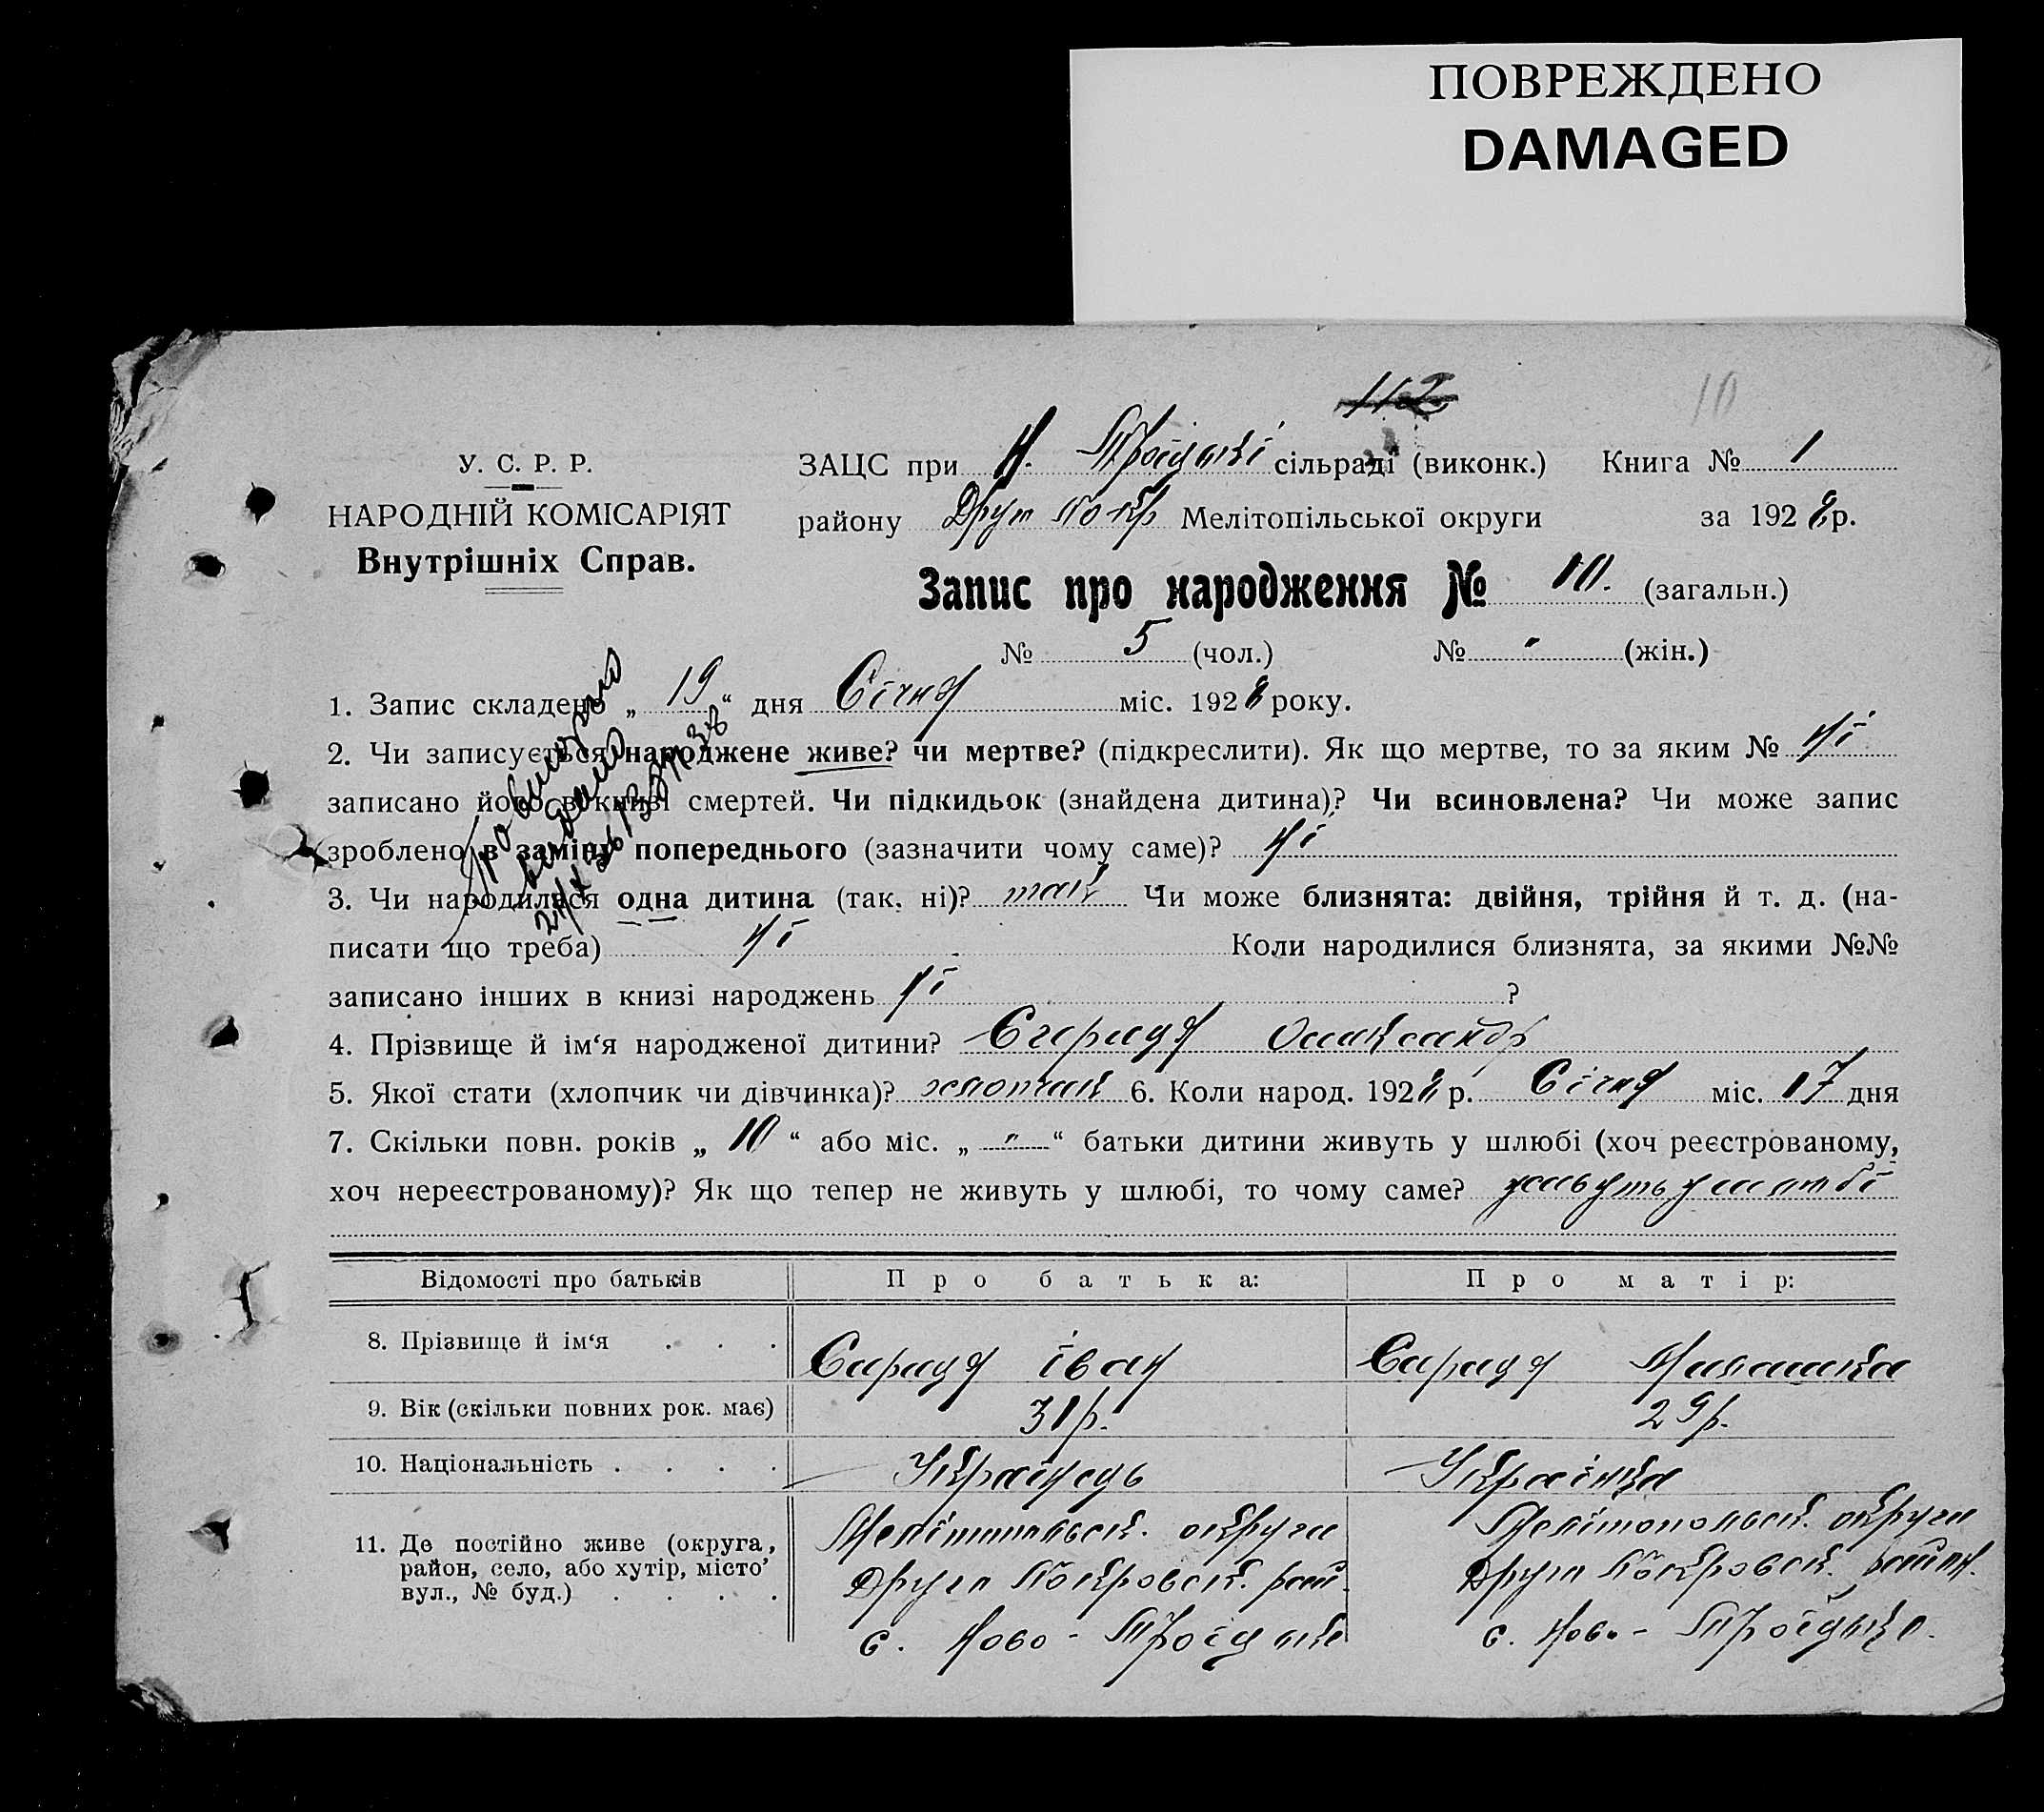 ПОВРЕЖДЕНО
DAMAGED
112
10
У. С. Р. Р.
НАРОДНІЙ КОМІСАРІЯТ
Внутрішніх Справ.
ЗАЦС при Н. Троіцькі сільраді (виконк.) Книга № 1
району Друг Покр Мелітопільської округи за 1928 р.
Запис про народження № 10. (загальн.)
№ 5 (чол.) № (жін.)
1. Запис складено „ 19 “ дня Січня міс. 1928 року.
2. Чи записується народжене живе? чи мертве? (підкреслити). Як що мертве, то за яким № ні
записано його в книзі смертей. Чи підкидьок (знайдена дитина)? Чи всиновлена? Чи може запис
зроблено в заміну попереднього (зазначити чому саме)? ні
3. Чи народилася одна дитина (так, ні)? так Чи може близнята: двійня, трійня й т. д. (на-
писати що треба) ні Коли народилися близнята, за якими №№
записано інших в книзі народжень ні ?
4. Прізвище й ім‘я народженої дитини? Олександр
5. Якої стати (хлопчик чи дівчинка)? хлопчик 6. Коли народ. 1928 р. Січня міс. 17 дня
7. Скільки повн. років „ 10 “ або міс. „ “ батьки дитини живуть у шлюбі (хоч реєстрованому,
хоч нереєстрованому)? Як що тепер не живуть у шлюбі, то чому саме? живуть у шлюбі
Відомості про батьків Про батька: Про матір:
8. Прізвище й ім‘я . . . Іван
9. Вік (скільки повних рок. має) 31 р. 29 р.
10. Національність . . . . Українець Українка
11. Де постійно живе (округа, район, село, або хутір, місто, вул., № буд.) . . . .
Мелітопільськ. округи
Друго Покровськ. рай.
с. Ново-Троіцьке
Мелітопольськ. округи
Друго Покровськ. район.
с. Ново-Троіцьке.